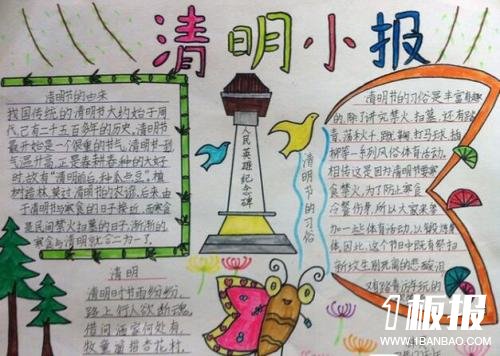 清明小报
清明节的由来
我国传统的清明节大约始于周
代,已有二千五百多年的历史,清明节
最开始是一个很重要的节气,清明一到
气温升高,正是春耕春种的大好
时,故有“清明前后,种瓜点豆”,植
树造林莫过清明的农谚,后来,由
于清明节与寒食的日子接近,而寒食
是民间禁火扫墓的日子,渐渐的
寒食与清明就合二为一了。
人民英雄纪念碑
清明节的习俗
清明节的习俗是丰富有趣
的,除了讲究禁火、扫墓,还有踏
青、荡秋千、踢蹴鞠、打马球、插
柳等一系列风俗体育活动。
相传这是因为清明节要寒食
禁火,为了防止寒食
冷餐伤身,所以大家来参
加一些体育活动,以锻炼身
体。因此,这个节日中既有祭扫
新坟生别死离的悲酸泪
又有踏青游玩的
清明
清明时节雨纷纷,
路上行人欲断魂。
借问酒家何处有,
牧童遥指杏花村。
1板报
WWW.1BANBAO.COM